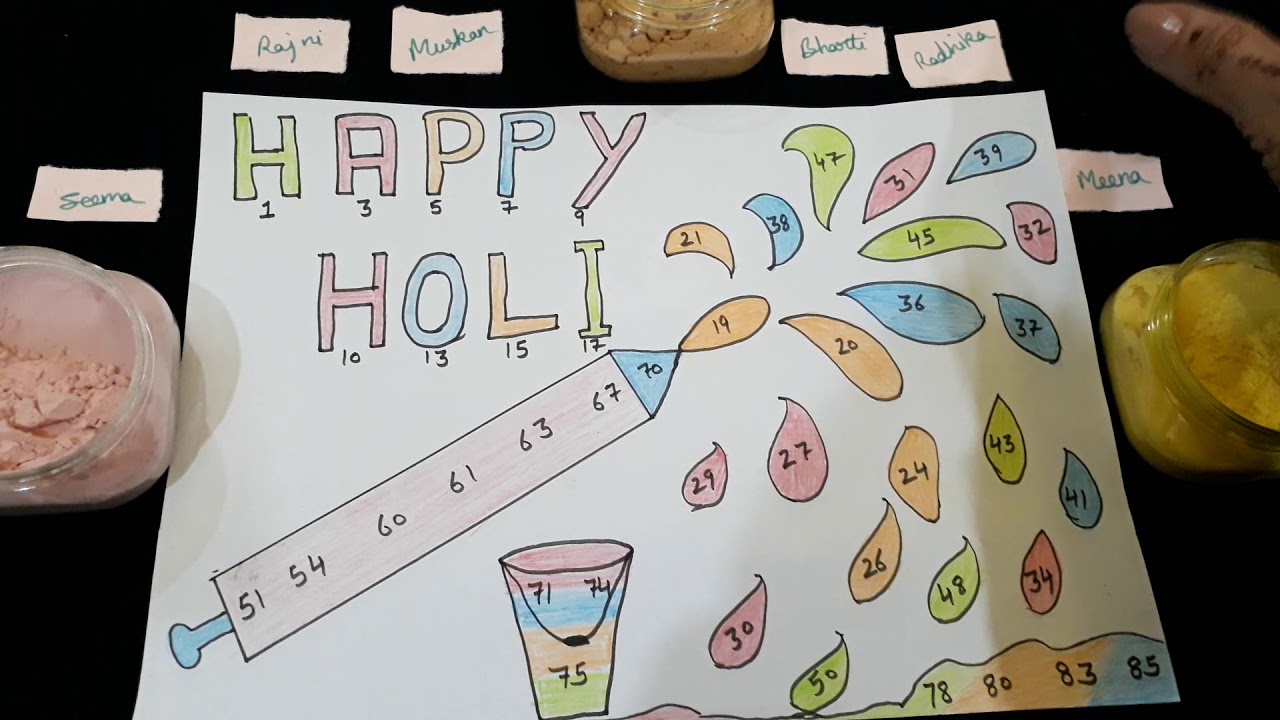 Rajni Muskan Bharti Radhika
Seema
Meena
HAPPY
1 3 5 7 9
HOLI
10 13 15 17
47 31 39
21 38 45 32
19 20 36 37
70
67
63
61
60
54
51
29 27 24 43 41
26 48 34
30 50
71 74
75
78 80 83 85